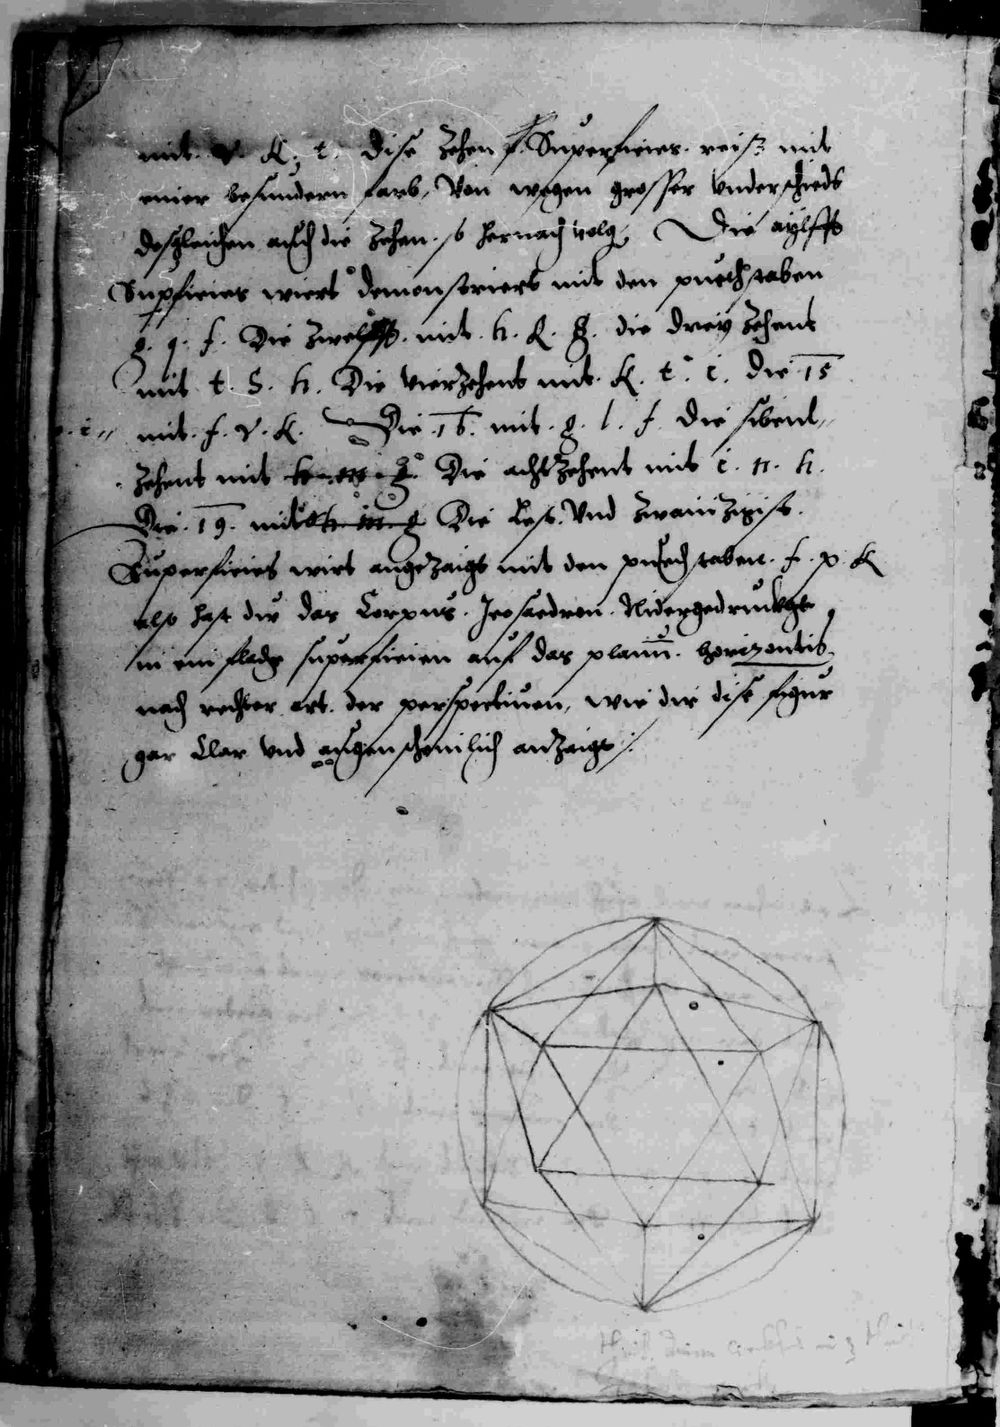 mit. v. k. t. Dise zehen Superficies. reiß mit
einer besundern farb, Von wegen grosser Vnderschieds
desgleichen auch die zehen. so hernach volg. Die aylfft
Supficies wiert demonstriert mit den puechstaben
g. q. f. Die zwelfft. mit. h. k. g. die drey zehent
mit t. s. h. Die vierzehent mit. k. t. i. Die 15
mit. f. v. k. Die. 16. mit. g. l. f. Die sibent„
zehent mit Die achtzehent mit i. n. h.
Die. 19. mit Die Lest. Vnd zwainzigist.
Superficies wirt angezaigt mit den puechstaben. f. p. k
also hast du das Corpus. Icosaedron. Nidergedruckht
in ein flache superficien auf das planum. horizontis
nach rechter art. der perspectiuen, wie dir dise figur
gar Clar vnd augenscheinlich anzaigt